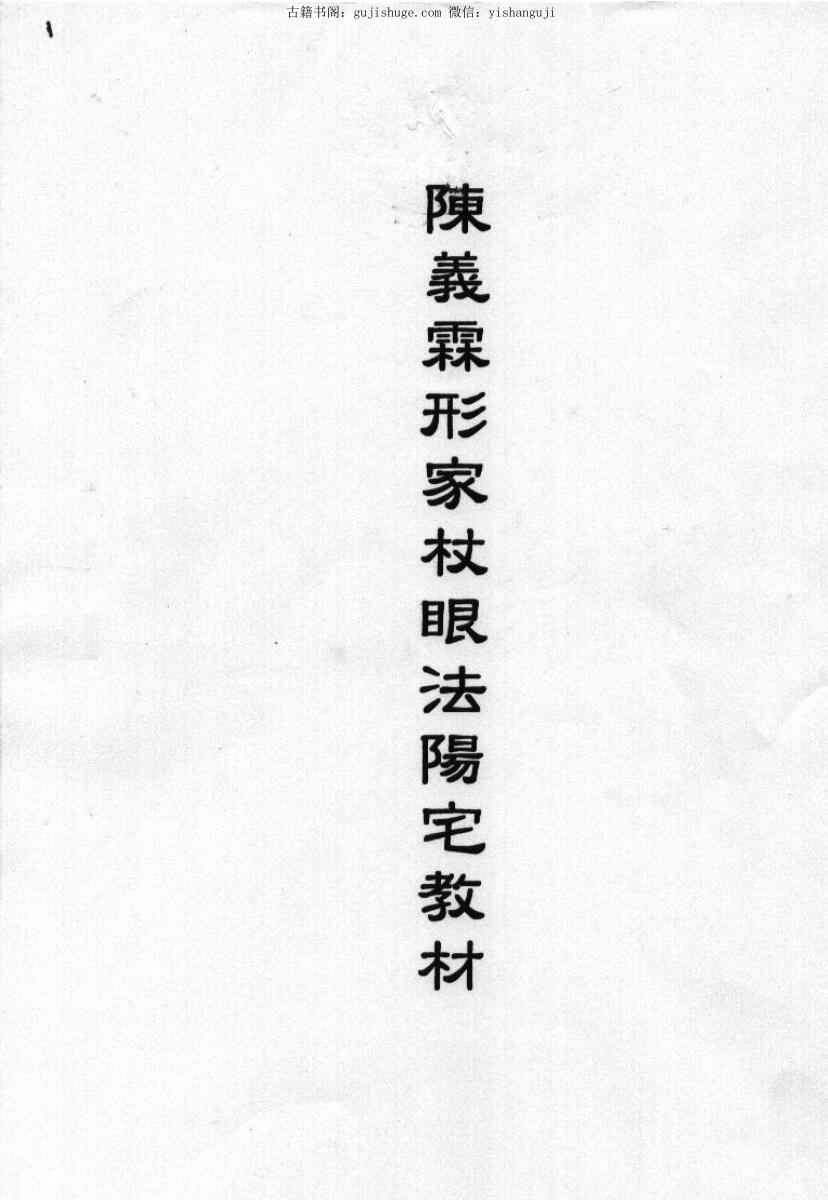 古籍书阁：gujishuge.com 微信：yishanguji
陳義霖形家杖眼法陽宅教材